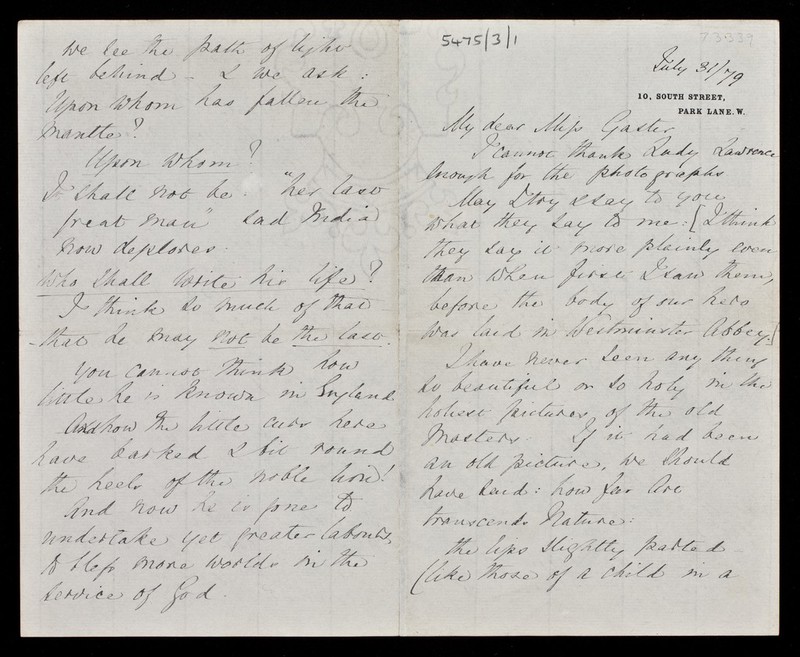 5475/3/1
73339
July 31/79
10, SOUTH STREET,
PARK LANE. W.
My dear Miss Gaster
I cannot thank Lady Lawrence
enough for the photographs
May I try & say to you
what they say to me: [I think
they say it more plainly even
than when first I saw them,
before the body of our hero
was laid in Westminster Abbey.]
I have never seen any thing
so beautiful or so holy in the
holiest pictures of the old
Masters. If it had been
an old picture, we should
have said: how far Art
transcends Nature:
the lips slightly parted -
(like those of a child in a
we see the path of light
left behind - & we ask:
Upon whom has fallen the
mantle?
Upon whom?
It shall not be "her last
great man" sad India
now deplores.
Who shall write his life?
I think so much of that
- that he may not be the last.
You cannot think how
little he is known in England.
And how the little curs here
have barked & bit round
the heels of the noble lion!
And now he is gone to
undertake yet greater labours,
to bless more worlds in the
service of God.